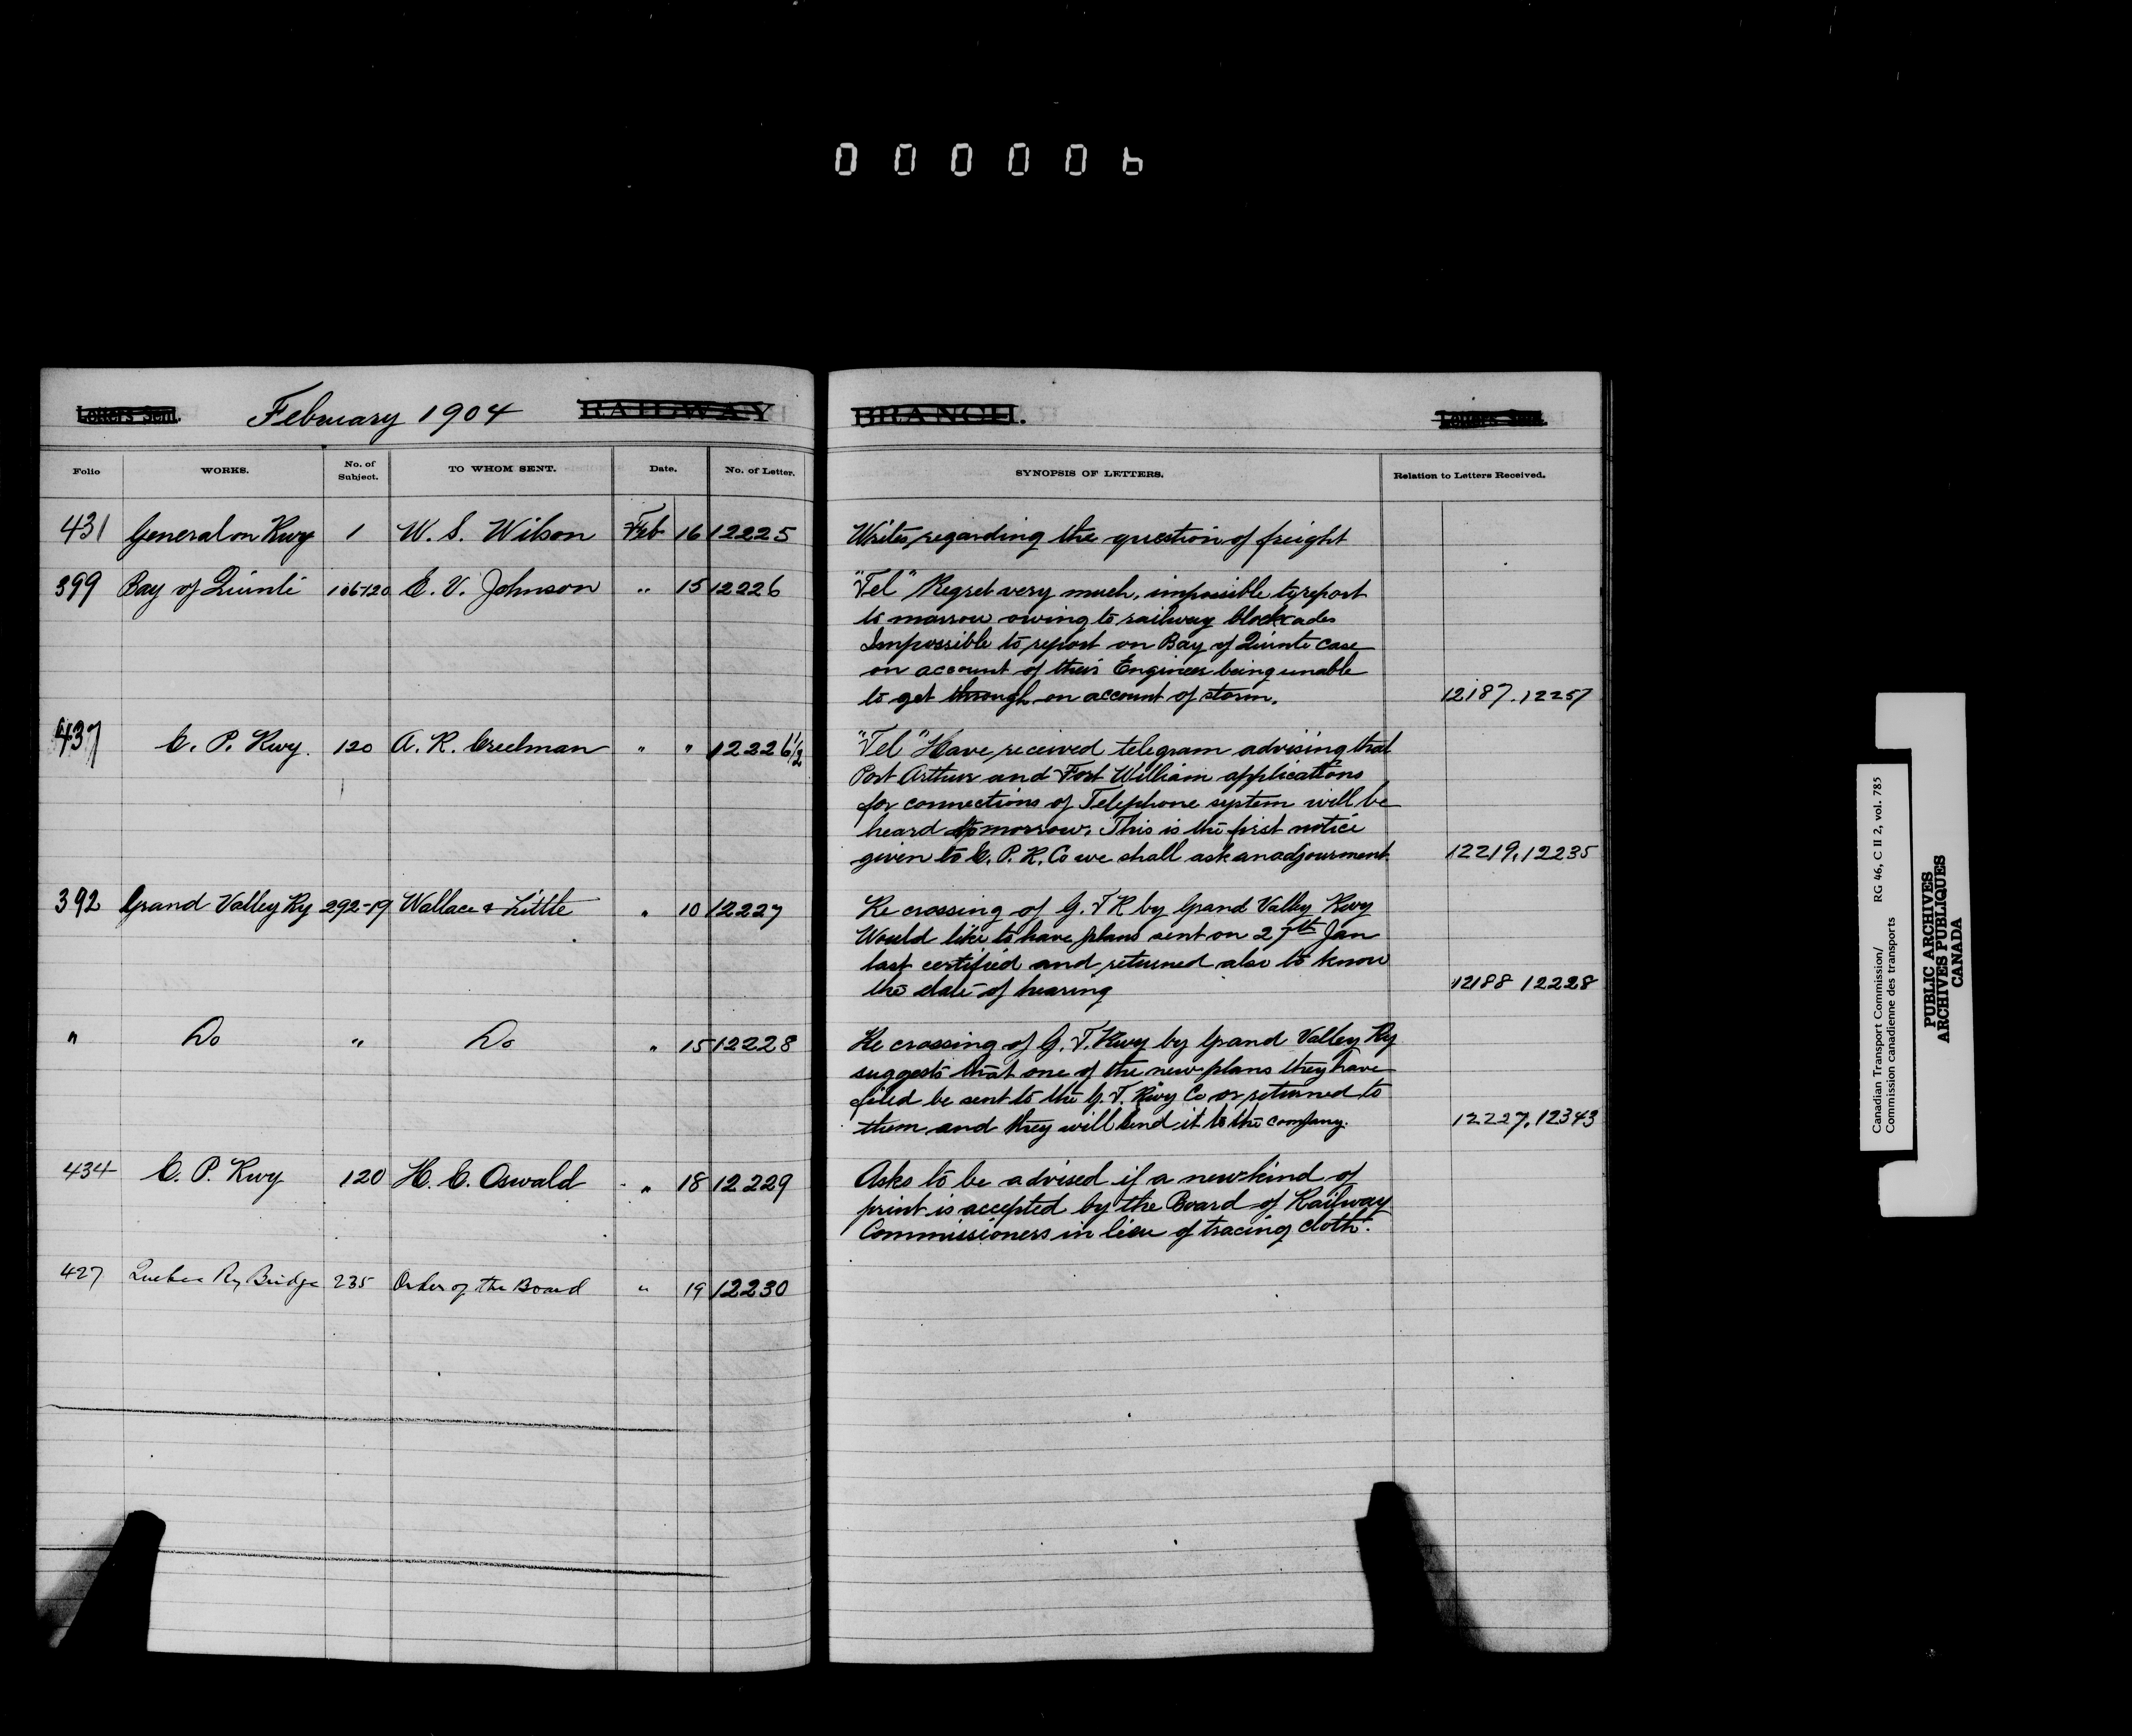 000006
Letters Sent. February 1904 RAILWAY BRANCH. Letters Sent.
Folio WORKS. No. of Subject. TO WHOM SENT. Date. No. of Letter. SYNOPSIS OF LETTERS. Relation to Letters Received.
431 General on Rwy 1 W. S. Wilson Feb 16 12225 Writes regarding the question of freight
399 Bay of Quinté 106-120 E. V. Johnson " 15 12226 "Tel" Regret very much, impossible to report
to morrow owing to railway blockcades
Impossible to report on Bay of Quinte case
on account of their Engineer being unable
to get through on account of storm. 12187. 12257
437 C. P. Rwy. 120 A. R. Creelman " " 12226½ "Tel" Have received telegram advising that
Port Arthur and Fort William applications
for connections of Telephone system will be
heard tomorrow. This is the first notice
given to C. P. R. Co we shall ask an adjourment. 12219, 12235
392 Grand Valley Ry 292-19 Wallace & Little " 10 12227 Re crossing of G. T R by Grand Valley Rwy
Would like to have plans sent on 27th Jan
last certified and returned also to know
the date of hearing 12188 12228
" Do " Do " 15 12228 Re crossing of G. T. Rwy by Grand Valley Ry
suggests that one of the new plans they have
filed be sent to the G. T. Rwy Co or returned to
them and they will send it to the company. 12227, 12343
434 C. P. Rwy 120 H. C. Oswald " 18 12229 Asks to be advised if a new kind of
print is accepted by the Board of Railway
Commissioners in lieu of tracing cloth.
427 Quebec Ry Bridge 235 Order of the Board " 19 12230
Canadian Transport Commission/ RG 46, C II 2, vol. 785
Commission canadienne des transports
PUBLIC ARCHIVES
ARCHIVES PUBLIQUES
CANADA